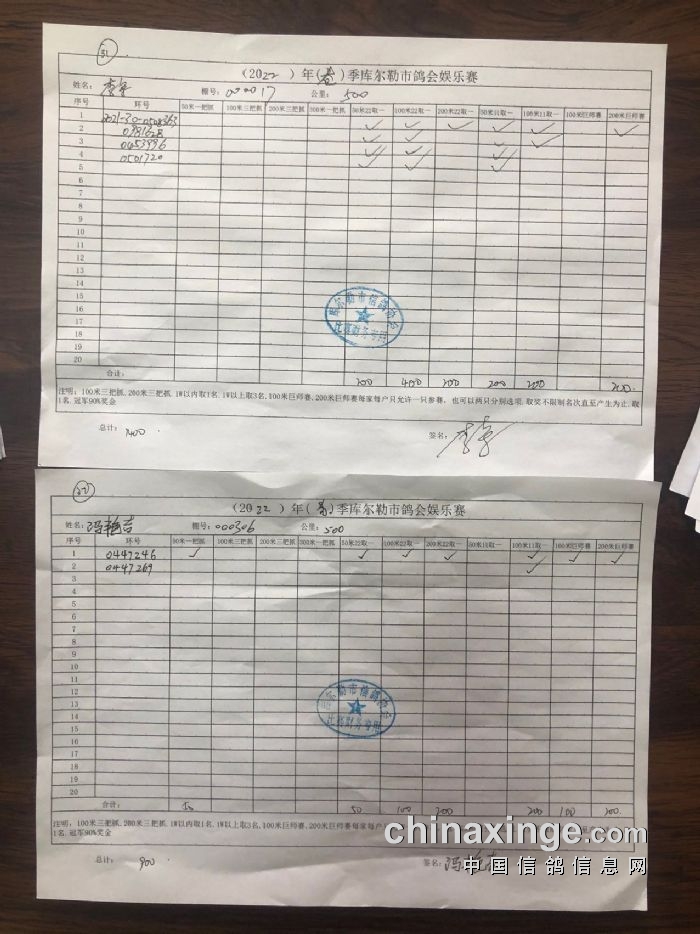 31
（2022 ）年（春）季库尔勒市鸽会娱乐赛
姓名： 棚号：000017 公里：500
序号 环号 50米一把抓 100米三把抓 200米三把抓 300米一把抓 50米22取一 100米22取一 200米22取一 50米11取一 100米11取一 100米巨师赛 200米巨师赛
1 2021-30-0508363 ✓ ✓ ✓ ✓ ✓ ✓
2 0981628 ✓ ✓ ✓ ✓
3 0453996 ✓ ✓ ✓
4 0501720 ✓ ✓ ✓
5
6
7
8
9
10
11
12
13
14
15
16
17
18
19
20
合计： 200 400 200 200 200 200
库尔勒市信鸽协会
比赛财务专用
注明：100米三把抓,200米三把抓,1W以内取1名,1W以上取3名,100米巨师赛,200米巨师赛每家每户只允许一只参赛，也可以两只分别选项,取奖不限制名次直至产生为止,取
1名,冠军90%奖金
总计：1400 签名：
（2022 ）年（春）季库尔勒市鸽会娱乐赛
姓名：冯艳吉 棚号：000306 公里：500
序号 环号 50米一把抓 100米三把抓 200米三把抓 300米一把抓 50米22取一 100米22取一 200米22取一 50米11取一 100米11取一 100米巨师赛 200米巨师赛
1 0447246 ✓ ✓ ✓ ✓ ✓ ✓ ✓
2 0447269 ✓
3
4
5
6
7
8
9
10
11
12
13
14
15
16
17
18
19
20
合计： 50 50 100 200 200 100 200
库尔勒市信鸽协会
比赛财务专用
注明：100米三把抓,200米三把抓,1W以内取1名,1W以上取3名,100米巨师赛,200米巨师赛每家每户只
1名,冠军90%奖金
总计：900 签名：冯艳吉
chinaxinge.com
中国信鸽信息网